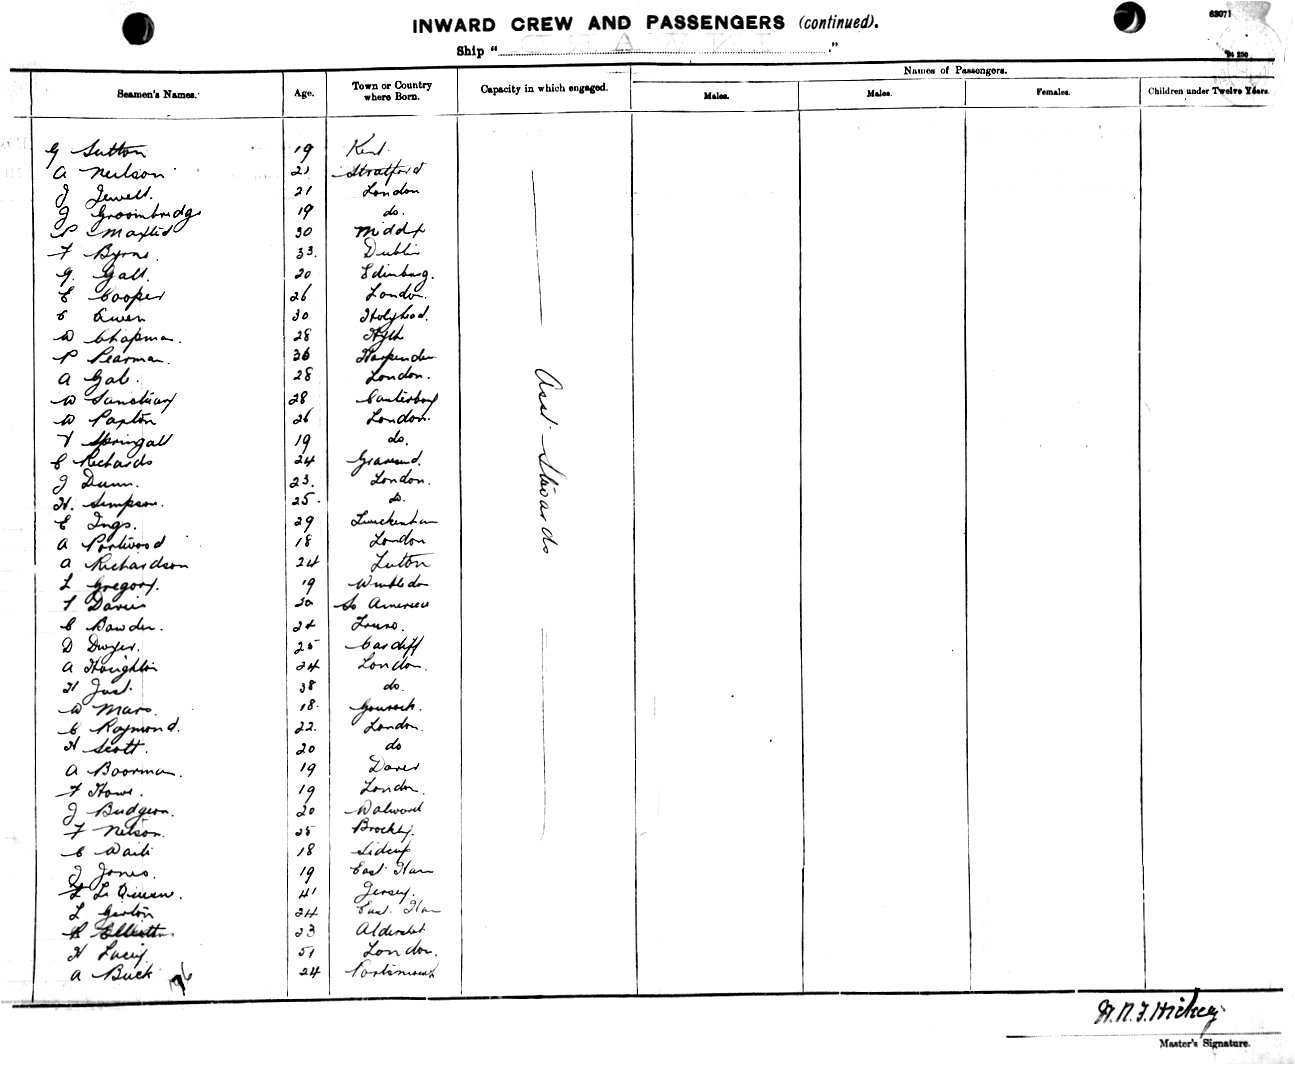 INWARD CREW AND PASSENGERS (continued).
63071
Ship " "
Seamen's Names. Age. Town or Country where Born. Capacity in which engaged. Names of Passengers.
Males. Males. Females. Children under Twelve Years.
G Sutton 19 Kent.
A Neilson 21 Stratford
J Jewell. 21 London
J Groombridge 19 do.
P Maxted 30 Middx
F Byrne. 33. Dublin
G. Gall. 20 Edinburg.
C Cooper 26 London.
E Owen 30 Holyhead.
W Chapman. 28 Hyth
P Pearman. 36 Harpenden
A Gab. 28 London.
W Sanctuary 28 Canterbury
W Paxton 26 London.
V Springall 19 do.
C Richards 24 Gravesend.
J Dunn. 23. London.
H. Simpson. 25. do.
E Ings. 29 Twickenham
A Portwood 18 London
A Richardson 24 Luton
L Gregory. 19 Wimbledon
F Davies 20 So America
C Bawden. 24 Truro.
D Dwyer. 25 Cardiff
A Houghton 24 London.
H Just. 38 do.
W Mars. 18. Gourock.
C Raymond. 22. London.
H Scott. 20 do
A Boorman. 19 Dover
F Howe. 19 London.
J Budgeon. 20 Walworth
F Nelson. 25 Brockley.
C Waite 18 Sidcup
J Jones. 19 East Ham
F Le Quesne. 41 Jersey.
L Girton 24 East Ham
R Elliott 23 Aldershot
H Lucey. 51 London.
A Buck 24 Portsmouth
Asst. Stewards
H. N. F. Hickey
Master's Signature.